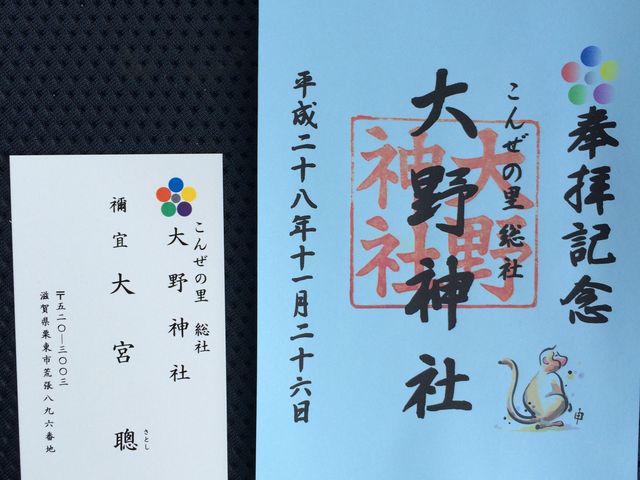 奉拝記念
こんぜの里総社
大野神社
大野
神社
平成二十八年十一月二十六日
申
こんぜの里 総社
大野神社
禰宜 大宮 聰
さとし
〒五二〇─三〇〇三
滋賀県栗東市荒張八九六番地